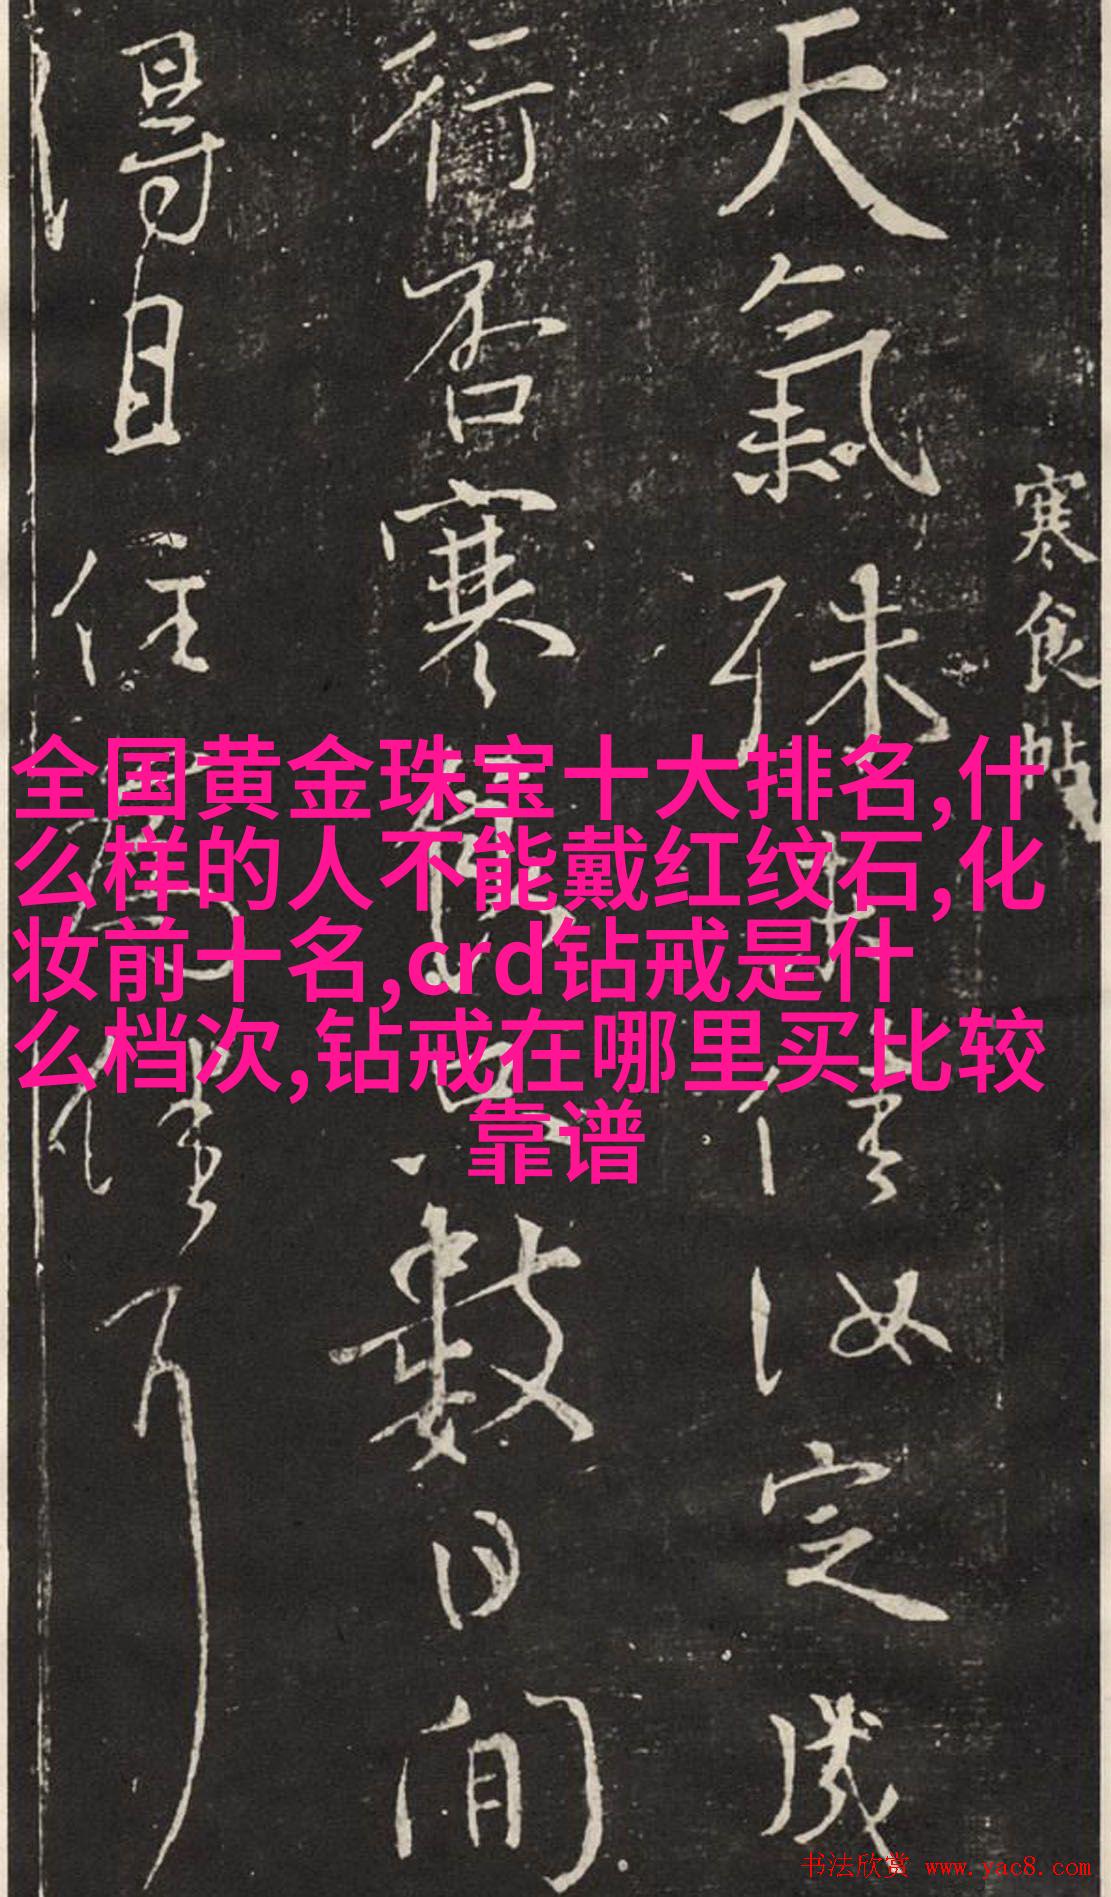 全国黄金珠宝十大排名,什
么样的人不能戴红纹石,化
妆前十名,crd钻戒是什
么档次,钻戒在哪里买比较
靠谱
寒食帖
天氣殊未佳汝定成
行否寒食只數日間
得且住為佳耳
书法欣赏 www.yac8.com